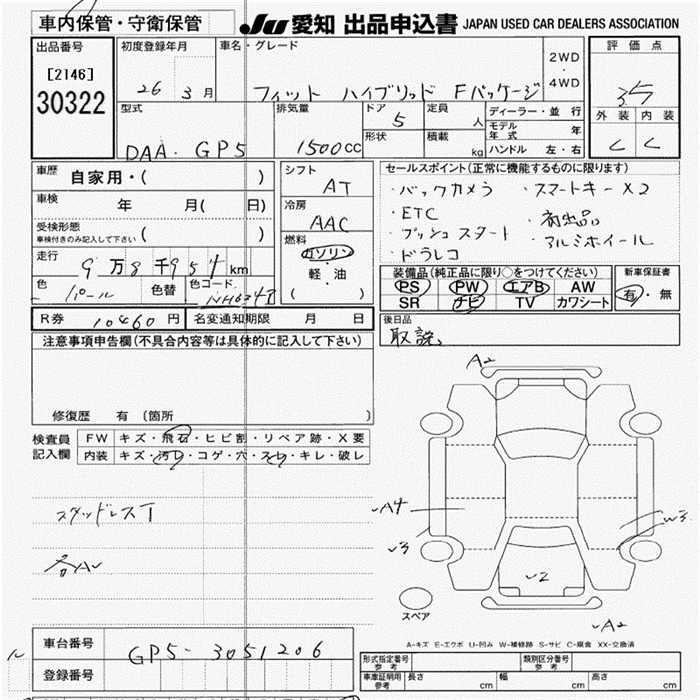 車内保管・守衛保管
JU 愛知 出品申込書 JAPAN USED CAR DEALERS ASSOCIATION
出品番号 初度登録年月 車名・グレード 2WD・4WD 評価点
[2146]
30322
26 3月 フィット ハイブリッド Fパッケージ
型式 排気量 ドア 定員 ディーラー・並行 外装 内装
5 人 モデル年式 年
形状 積載 kg ハンドル 左・右
DAA・GP5 1500cc C C
車歴 自家用・( ) シフト セールスポイント(正常に機能するものに限ります)
AT
車検 年 月( 日) 冷房 ・バックカメラ ・スマートキー×2
AAC ・ETC
受検形態 車検付きのみ記入して下さい ( ) ・プッシュスタート ・アルミホイール
燃料 ・ドラレコ
走行 9万8千954km ガソリン 軽・油 ( )
装備品(純正品に限り○をつけてください) 新車保証書
色 パール 色替 色コード NH624P
PS PW エアB AW 有・無
SR ナビ TV カワシート
R券 10460円 名変通知期限 月 日 後日品
取説、
注意事項申告欄(不具合内容等は具体的に記入して下さい)
修復歴 有 (箇所 )
検査員記入欄 FW キズ・飛石・ヒビ割・リペア跡・X要
内装 キズ・汚レ・コゲ・穴・スレ・キレ・破レ
A2
スタッドレスT
A4
W3
3
各A
2
スペア
A2
A-キズ E-エクボ U-凹み W-補修跡 S-サビ C-腐食 XX-交換済
車台番号 GP5-3051206
登録番号
形式指定番号 参考 類別区分番号 参考
車庫証明用 参考 長さ cm 幅 cm 高さ cm